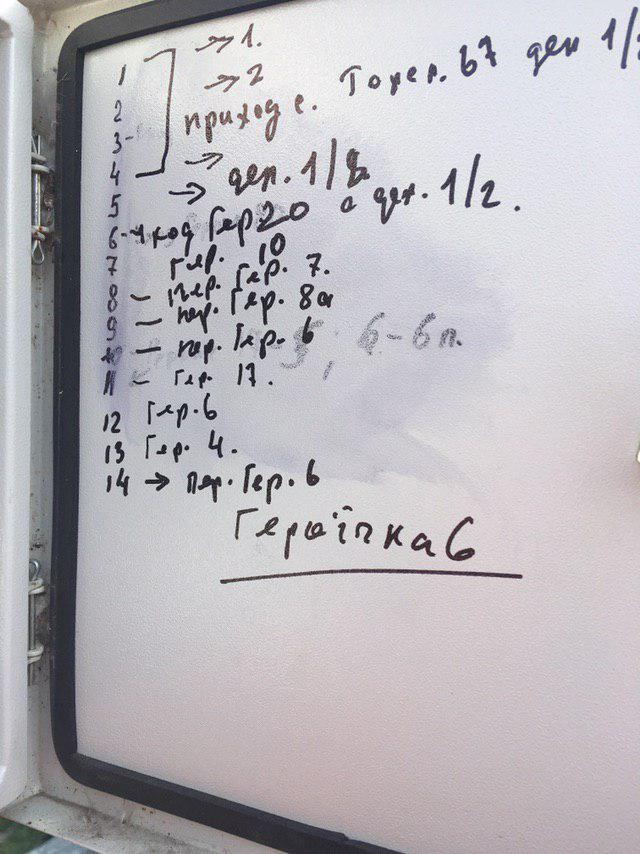 1 → 1.
2 → 2
3 - приход с. Топол. 67 дел 1/2
4 → дел. 1/8
5 → с дел. 1/2.
6 - ход Гер 20
7 Гер. 10
8 - пер. Гер. 7.
9 - пер. Гер. 8а
10 - пер. Гер. 6 5, 6-6п.
11 - Гер. 17.
12 Гер. 6
13 Гер. 4.
14 → пер. Гер. 6
Героїчна 6